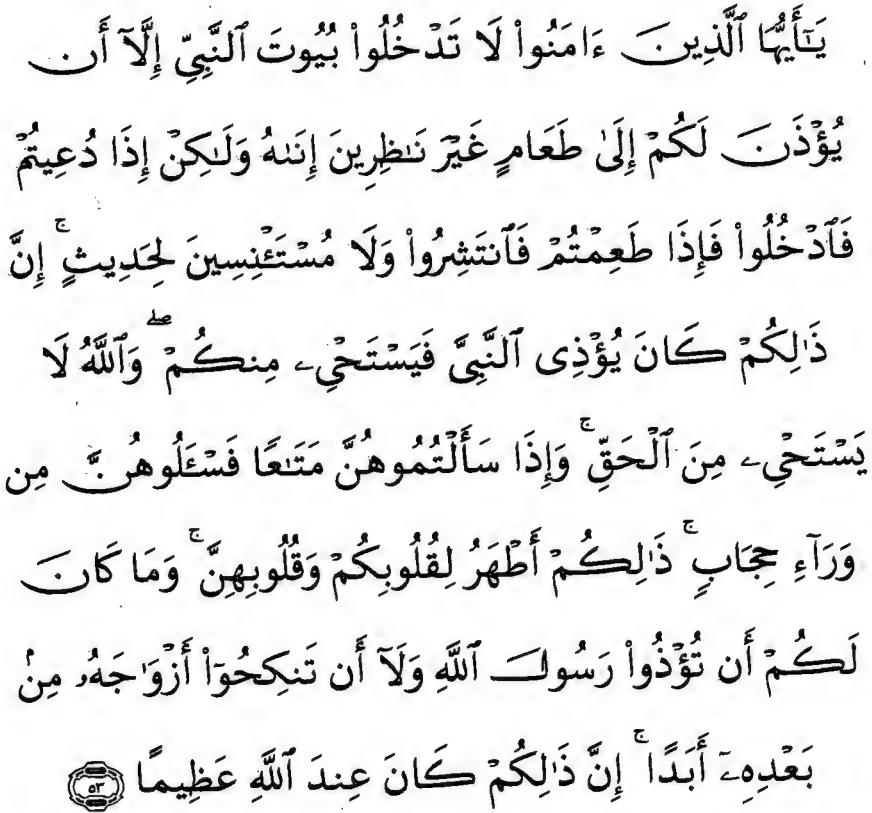 يَـٰٓأَيُّهَا ٱلَّذِينَ ءَامَنُوا۟ لَا تَدْخُلُوا۟ بُيُوتَ ٱلنَّبِىِّ إِلَّآ أَن
يُؤْذَنَ لَكُمْ إِلَىٰ طَعَامٍ غَيْرَ نَـٰظِرِينَ إِنَىٰهُ وَلَـٰكِنْ إِذَا دُعِيتُمْ
فَٱدْخُلُوا۟ فَإِذَا طَعِمْتُمْ فَٱنتَشِرُوا۟ وَلَا مُسْتَـْٔنِسِينَ لِحَدِيثٍ ۚ إِنَّ
ذَٰلِكُمْ كَانَ يُؤْذِى ٱلنَّبِىَّ فَيَسْتَحْىِۦ مِنكُمْ ۖ وَٱللَّهُ لَا
يَسْتَحْىِۦ مِنَ ٱلْحَقِّ ۚ وَإِذَا سَأَلْتُمُوهُنَّ مَتَـٰعًا فَسْـَٔلُوهُنَّ مِن
وَرَآءِ حِجَابٍ ۚ ذَٰلِكُمْ أَطْهَرُ لِقُلُوبِكُمْ وَقُلُوبِهِنَّ ۚ وَمَا كَانَ
لَكُمْ أَن تُؤْذُوا۟ رَسُولَ ٱللَّهِ وَلَآ أَن تَنكِحُوٓا۟ أَزْوَٰجَهُۥ مِنۢ
بَعْدِهِۦٓ أَبَدًا ۚ إِنَّ ذَٰلِكُمْ كَانَ عِندَ ٱللَّهِ عَظِيمًا ۝٥٣